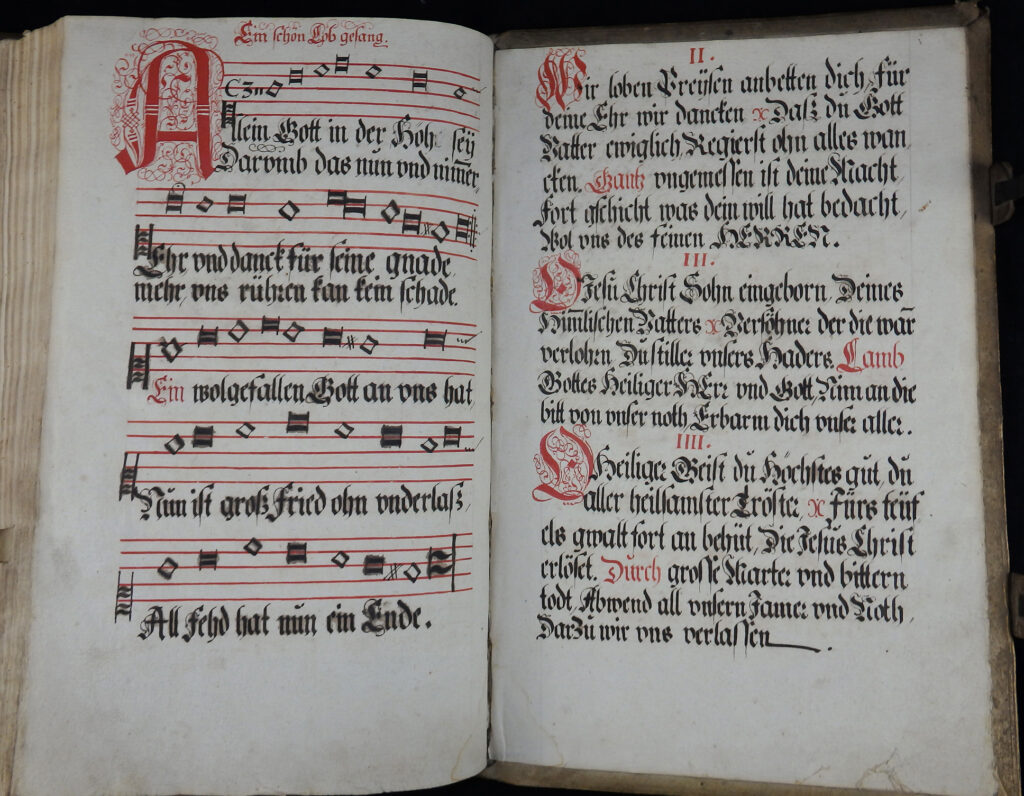 Ein schön Lob gesang.
Allein Gott in der Höh sey
Darvmb das nün vnd nim̄er
Ehr vnd danck für seine gnade
mehr, vns rühren kan kein schade.
Ein wolgefallen Gott an vns hat,
Nün ist groß Fried ohn vnderlasz,
All Fehd hat nün ein Ende.
II.
Wir loben Preÿsen anbetten dich, für
deine Ehr wir dancken Dasz dü Gott
Vatter ewiglich, Regierst ohn alles wan
cken. Gantz vngemessen ist deine Macht,
Fort gschicht was dein will hat bedacht,
Wol vns des feinen HERREN.
III.
O Jesü Christ Sohn eingeborn, Deines
Him̄lischen Vatters Versöhner der die war̄
verlohrn Dü stiller vnsers Haders, Lamb
Gottes Heiliger HErr vnd Gott, Nim an die
bitt von vnser noth Erbarm dich vnser aller.
IIII.
O Heiliger Geist dü Höchstes güt, dü
aller heilsamster Tröster, Fürs teüf
els gwalt fort an behüt, Die Jesus Christ
erlöset. Durch grosse Marter vnd bittern
todt, Abwend all vnsern Jamer vnd Noth,
Darzü wir vns verlassen.